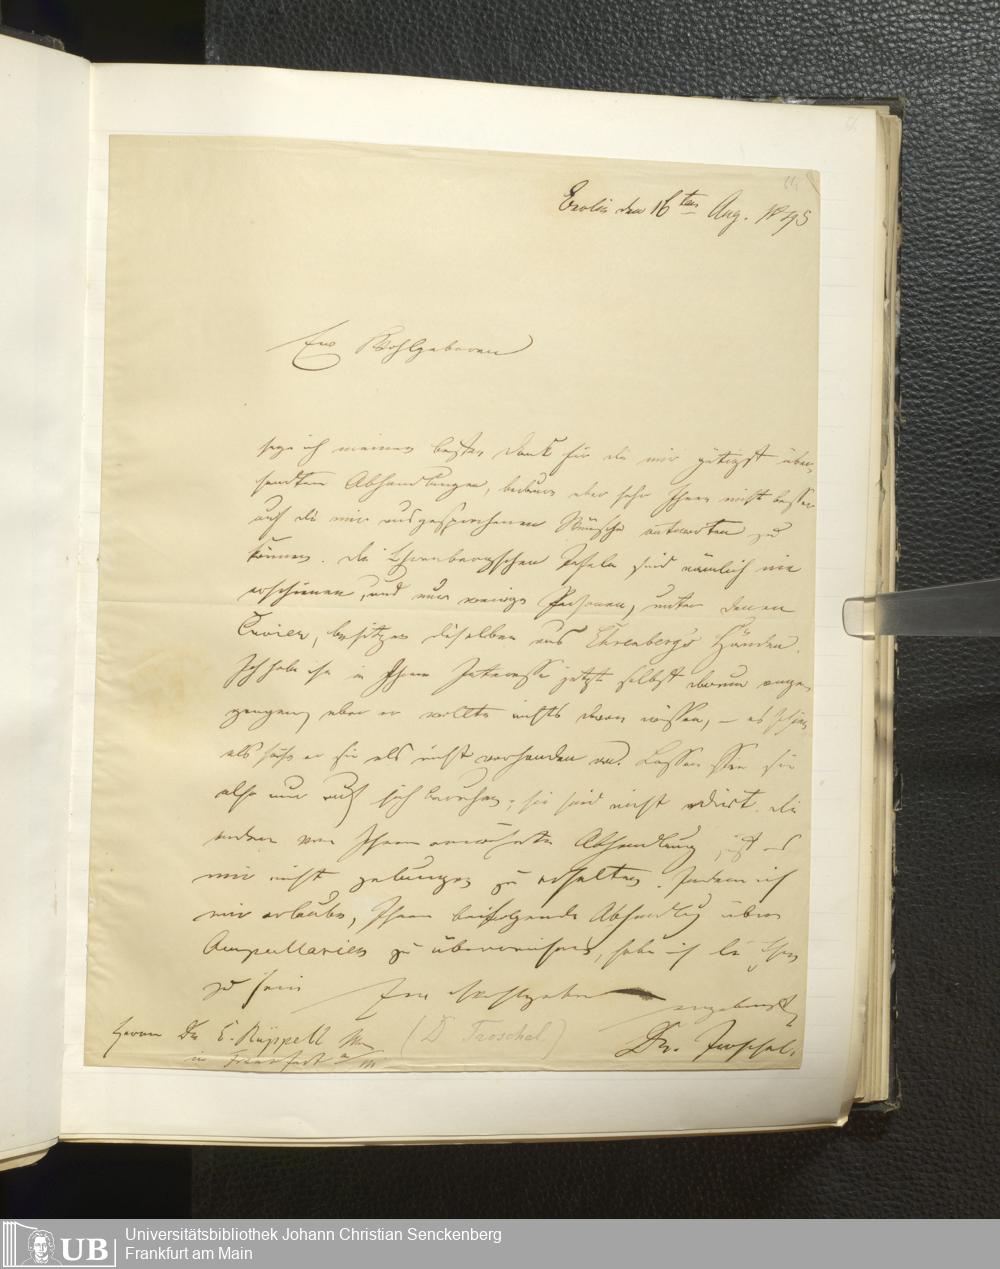 Berlin den 16ten Aug. 1845
Ew Wohlgeboren
sage ich meinen besten Dank für die mir gütigst über-
sandten Abhandlungen, bedaure aber sehr Ihnen nicht besser
auf die mir ausgesprochenen Wünsche antworten zu
können. Die Ehrenbergschen Tafeln sind nämlich nie
erschienen, und nur wenige Personen, unter denen
Cuvier, besitzen dieselben aus Ehrenberg's Händen.
Ich habe ihn in Ihrem Interesse jetzt selbst darum ange-
gangen, aber er wollte nichts davon wissen, – es schien
als sähe er sie als nicht vorhanden an. Lassen Sie sie
also nur auf sich beruhen; sie sind nicht edirt. Die
andere von Ihnen erwähnte Abhandlung ist es
mir nicht gelungen zu erhalten. Indem ich
mir erlaube, Ihnen beifolgende Abhandlung über
Ampullarien zu überreichen, habe ich die Ehre
zu sein Ew Wohlgeboren
ergebenster
Herrn Dr. E. Rüppell (D Troschel.) Dr. Troschel.
in Frankfurt a/M.
UB
Universitätsbibliothek Johann Christian Senckenberg
Frankfurt am Main